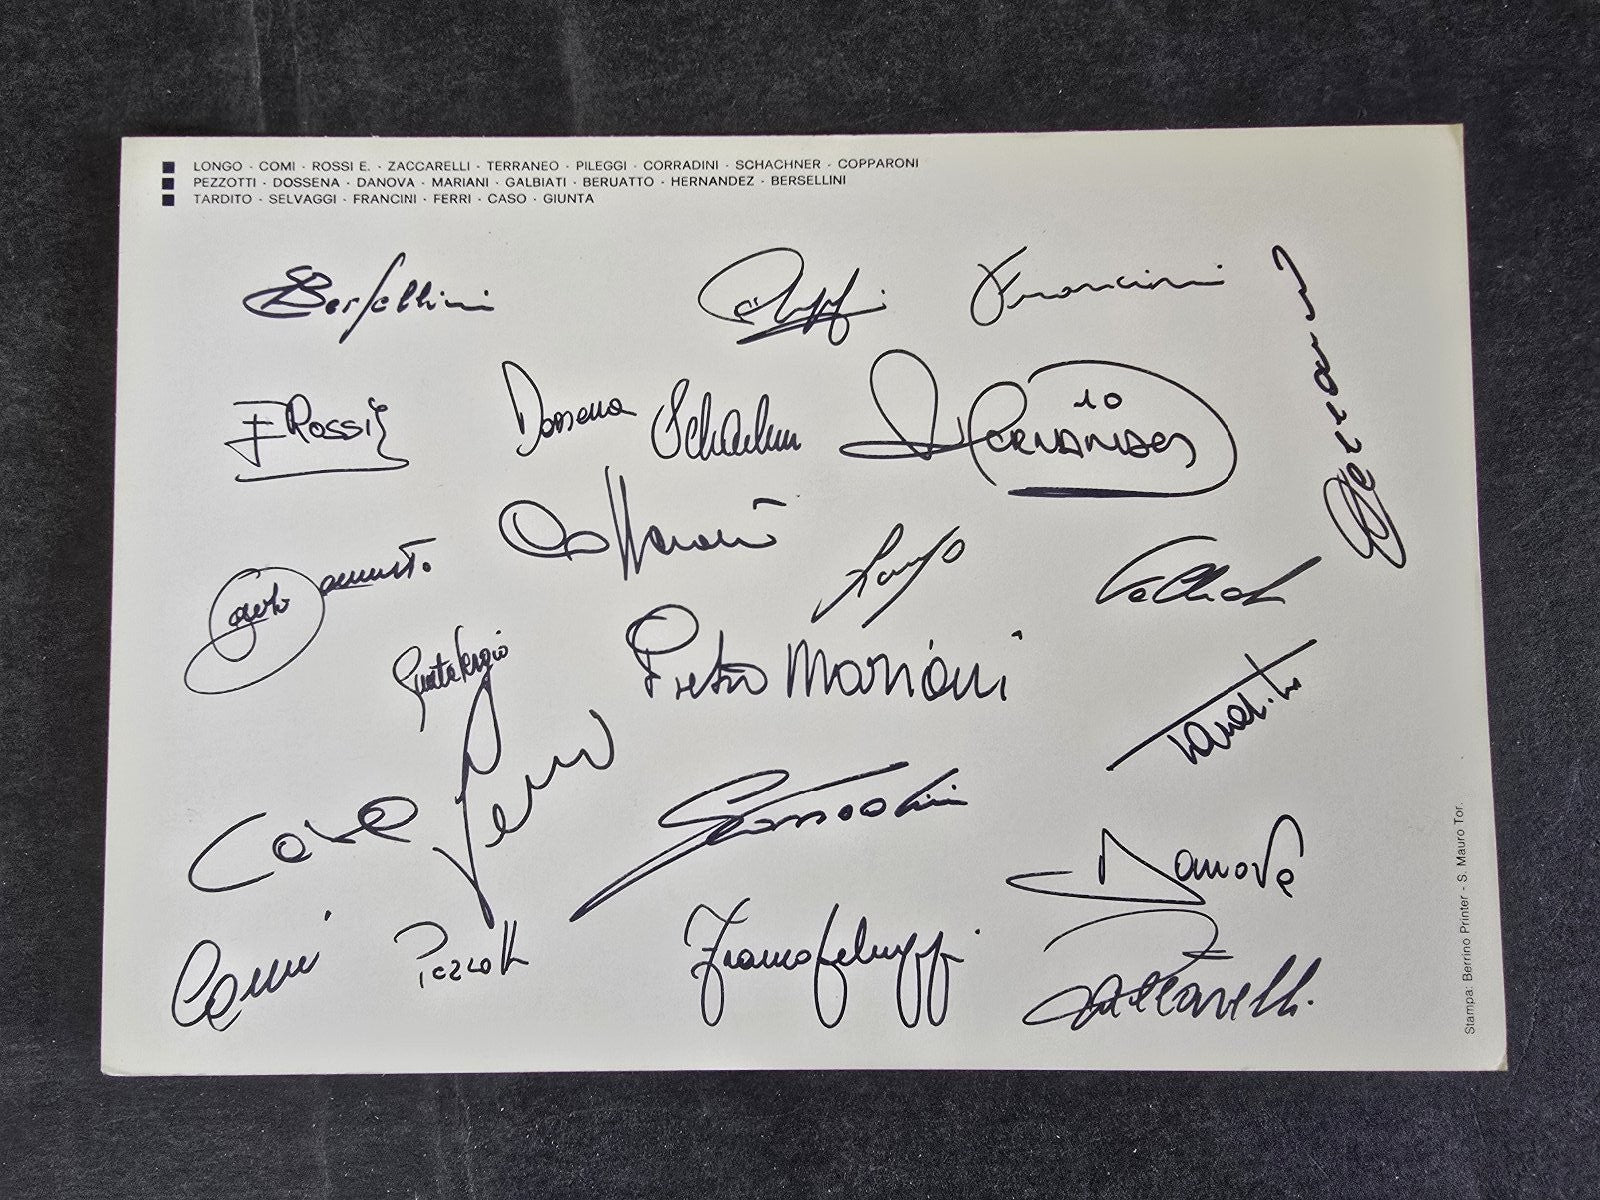 LONGO - COMI - ROSSI E. - ZACCARELLI - TERRANEO - PILEGGI - CORRADINI - SCHACHNER - COPPARONI
PEZZOTTI - DOSSENA - DANOVA - MARIANI - GALBIATI - BERUATTO - HERNANDEZ - BERSELLINI
TARDITO - SELVAGGI - FRANCINI - FERRI - CASO - GIUNTA
Bersellini
Francini
E Rossi
Dossena
Schachner
10
Hernandez
Longo
Giunta Sergio
Pietro Mariani
Tardito
Caso
Ferri
Danova
Comi
Pezzotti
Franco Selvaggi
Zaccarelli
Stampa: Berrino Printer - S. Mauro Tor.